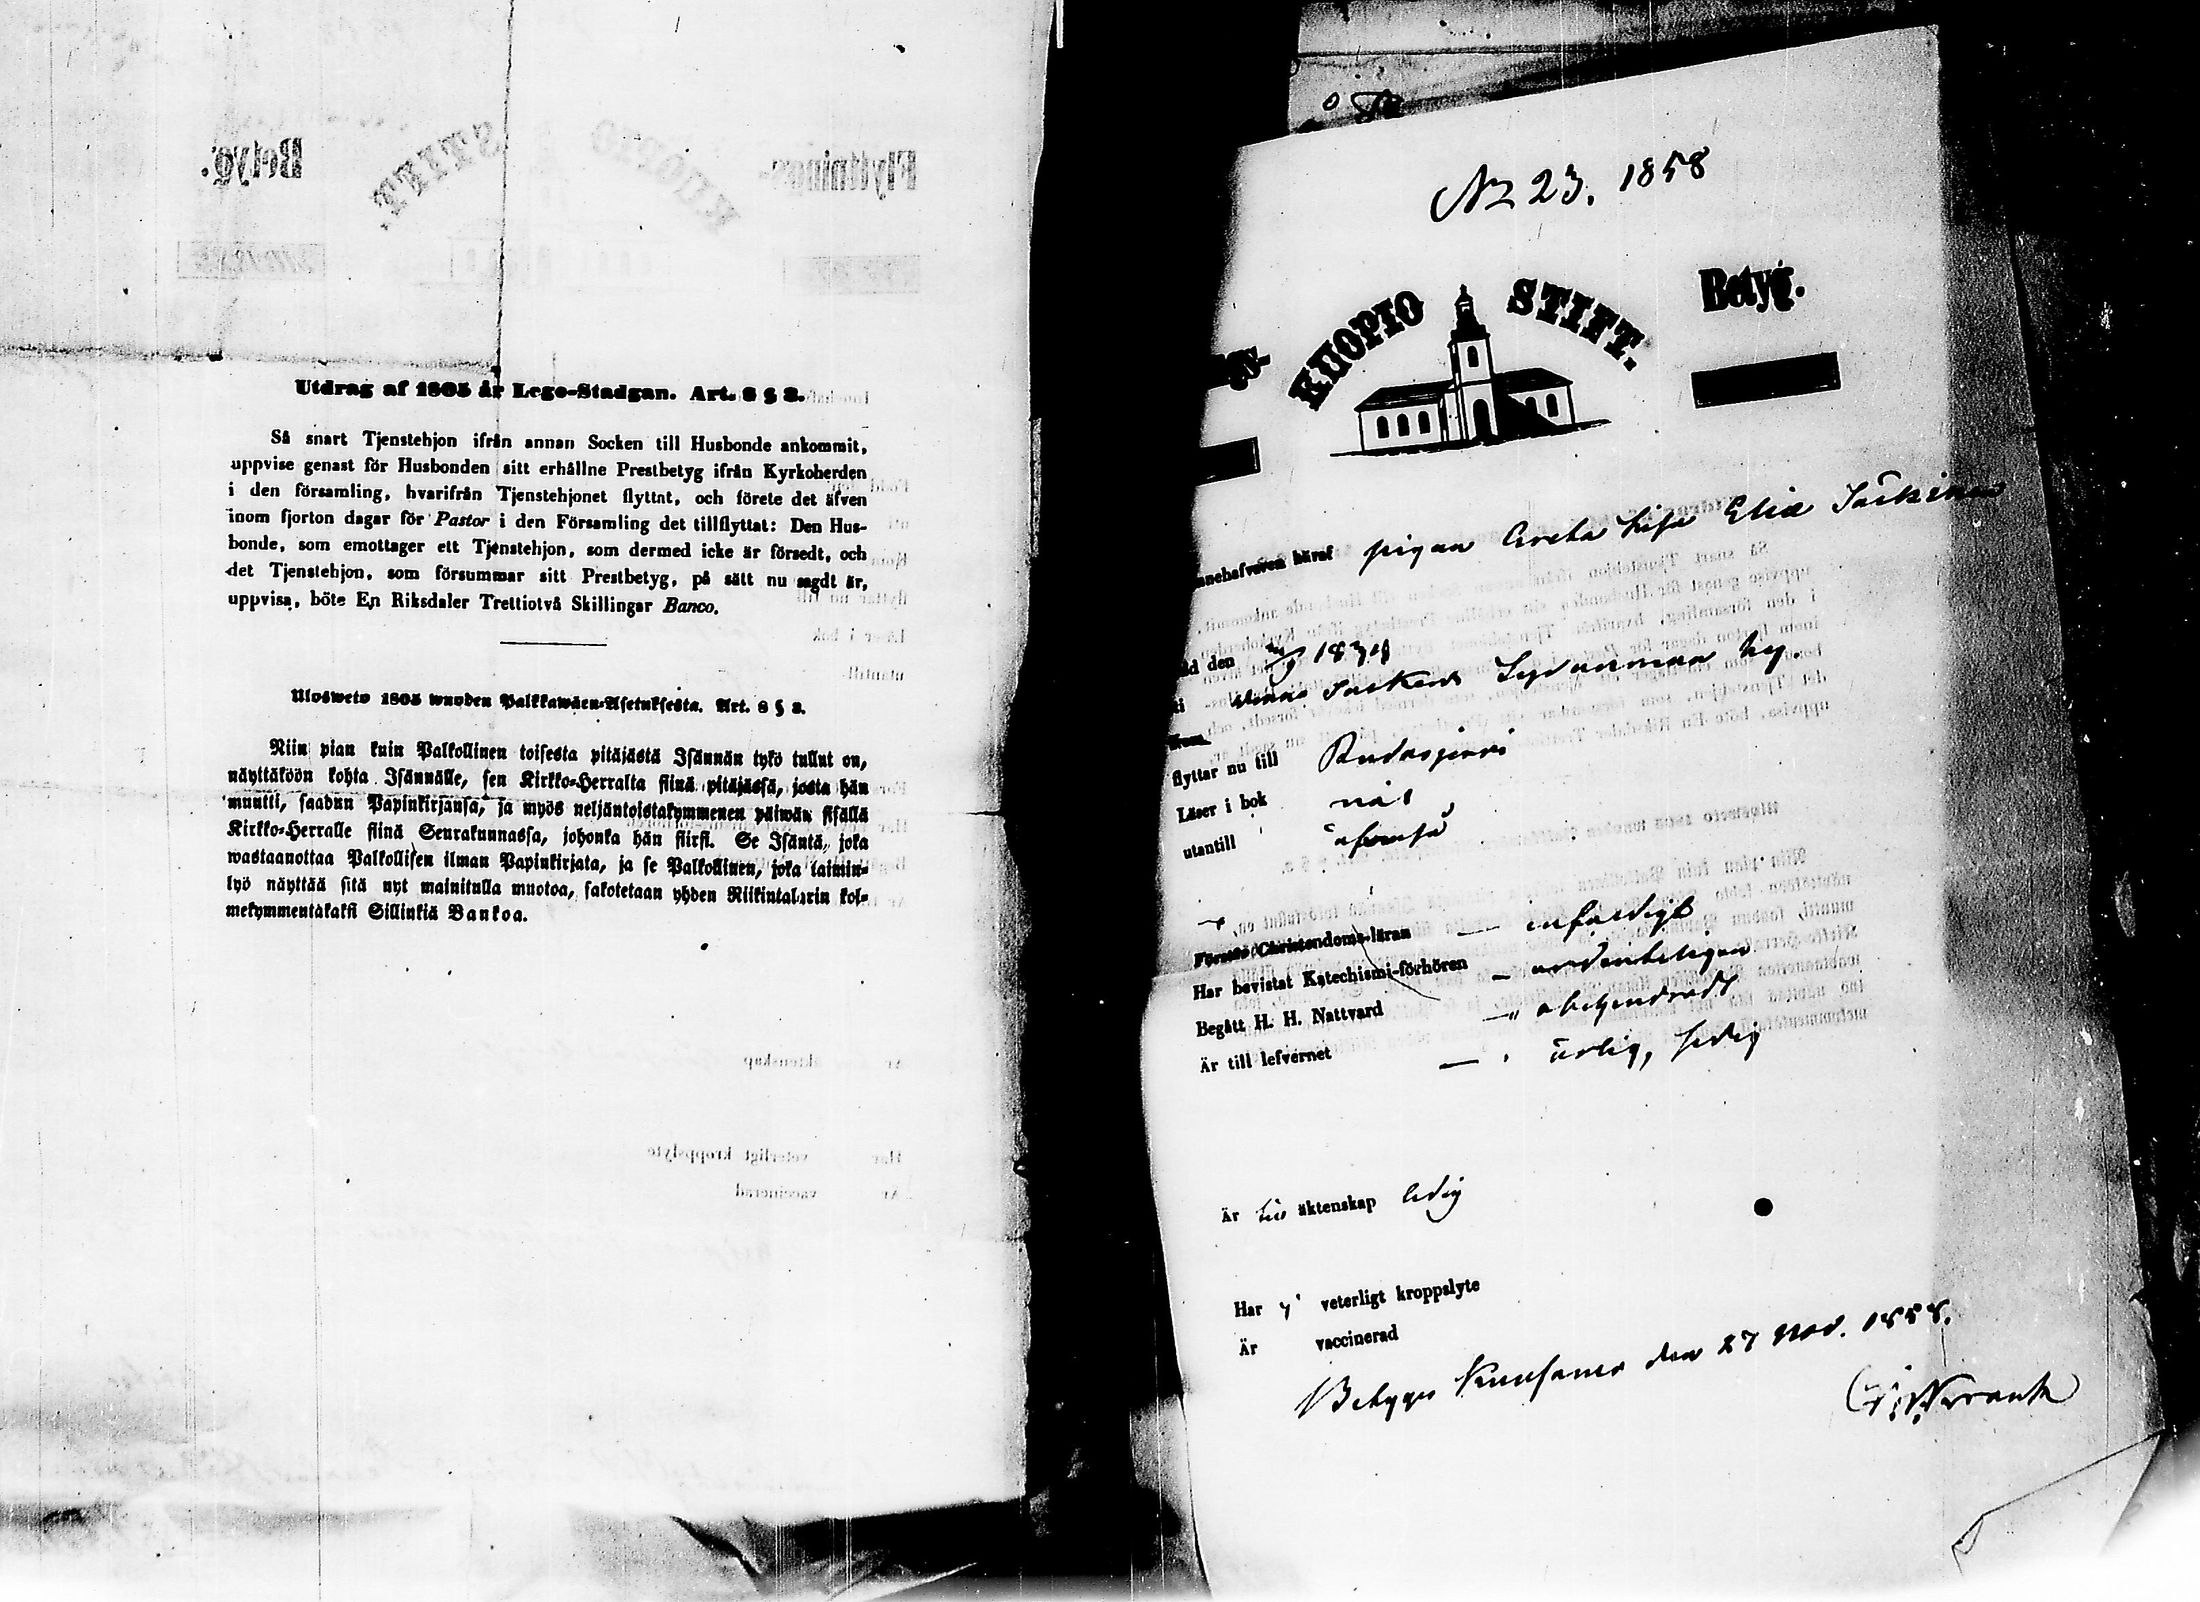 Utdrag af 1805 år Lego-Stadgan. Art. 8 § 3.
Så snart Tjenstehjon ifrån annan Socken till Husbonde ankommit,
uppvise genast för Husbonden sitt erhållne Prestbetyg ifrån Kyrkoherden
i den församling, hvarifrån Tjenstehjonet flyttat, och förete det äfven
inom fjorton dagar för Pastor i den Församling det tillflyttat: Den Hus-
bonde, som emottager ett Tjenstehjon, som dermed icke är försedt, och
det Tjenstehjon, som försummar sitt Prestbetyg, på sätt nu sagdt är,
uppvisa, böte En Riksdaler Trettiotvå Skillingar Banco.
Ulosweto 1805 wuoden Palkkawäen-Asetuksesta. Art. 8 § 3.
Niin pian kuin Palkollinen toisesta pitäjästä Isännän tykö tullut on,
näyttäköön kohta Isännälle, sen Kirkko-Herralta siinä pitäjässä, josta hän
muutti, saadun Papinkirjansa, ja myös neljäntoistakymmenen päiwän sisällä
Kirkko-Herralle siinä Seurakunnassa, johonka hän siirsi. Se Isäntä, joka
wastaanottaa Palkollisen ilman Papinkirjata, ja se Palkollinen, joka laimin-
lyö näyttää sitä nyt mainitulla muotoa, sakotetaan yhden Riikintalarin kol-
mekymmentäkaksi Sillinkiä Bankoa.
No 23. 1858
KUOPIO STIFT.
Betyg.
Innehafvaren häraf pigan Greta Lisa Elia
född den 1839
från
flyttar nu till Pudasjervi
Läser i bok nåt
utantill
Förstår Christendoms-läran enfaldigt
Har bevistat Katechismi-förhören ordenteligen
Begått H. H. Nattvard obehindradt
Är till lefvernet ärlig, sedig
Är till äktenskap ledig
Har ej veterligt kroppslyte
Är vaccinerad
Betygar Kuusamo den 27 Nov. 1858.